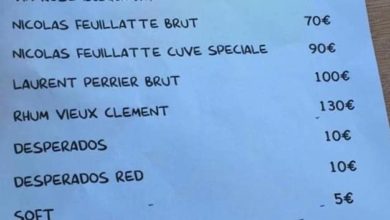 NICOLAS FEUILLATTE BRUT 70€
NICOLAS FEUILLATTE CUVE SPECIALE 90€
LAURENT PERRIER BRUT 100€
RHUM VIEUX CLEMENT 130€
DESPERADOS 10€
DESPERADOS RED 10€
SOFT 5€